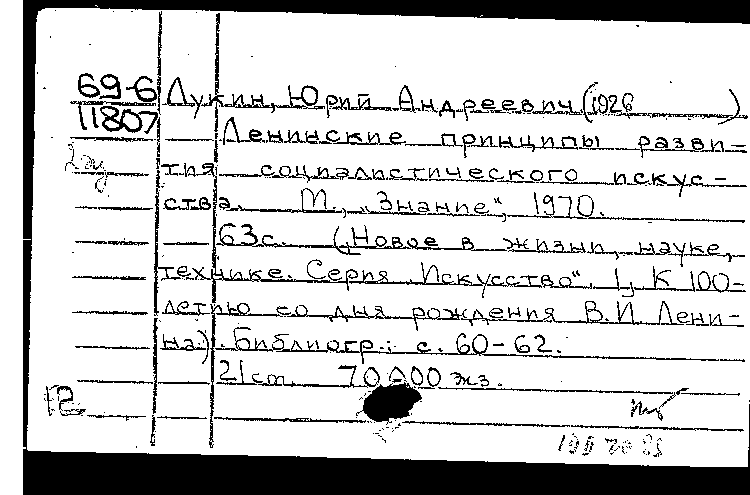 69-6 Лукин, Юрий Андреевич (1926 )
11807 Ленинские принципы разви-
2эк тия социалистического искус-
ства. М., „Знание“, 1970.
63с. (Новое в жизни, науке,
технике. Серия „Искусство“. 1, К 100-
летию со дня рождения В.И. Лени-
на). Библиогр.: с. 60-62.
21 см. 70 000 экз.